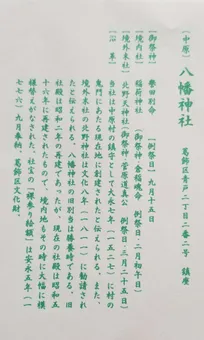 〔中原〕 八幡神社 葛飾区青戸二丁目二番二号 鎮座
〔御祭神〕 誉田別命 〔例祭日〕 九月十五日
〔境内社〕 稲荷神社 (御祭神・倉稲魂命 例祭日・二月初午日)
〔境外末社〕 北野天神社(御祭神・菅原道真公 例祭日・三月二十五日)
〔沿 革〕
当社は中原村の鎮守として大永七年(一五二七)に村の
鬼門にあたる現在地に創建されたと伝えられる。また、
境外末社の北野神社は文化八年(一八一一)に勧請され
たと伝えられる。八幡神社の旧別当は勝養寺である。旧
社殿は昭和二年の再建であったが、現在の社殿は昭和五
十六年に再建されたもので、境内地もその時に大幅に模
様替えがなされた。社宝の「裸参り絵額」は安永五年(一
七七六)九月奉納。葛飾区文化財。